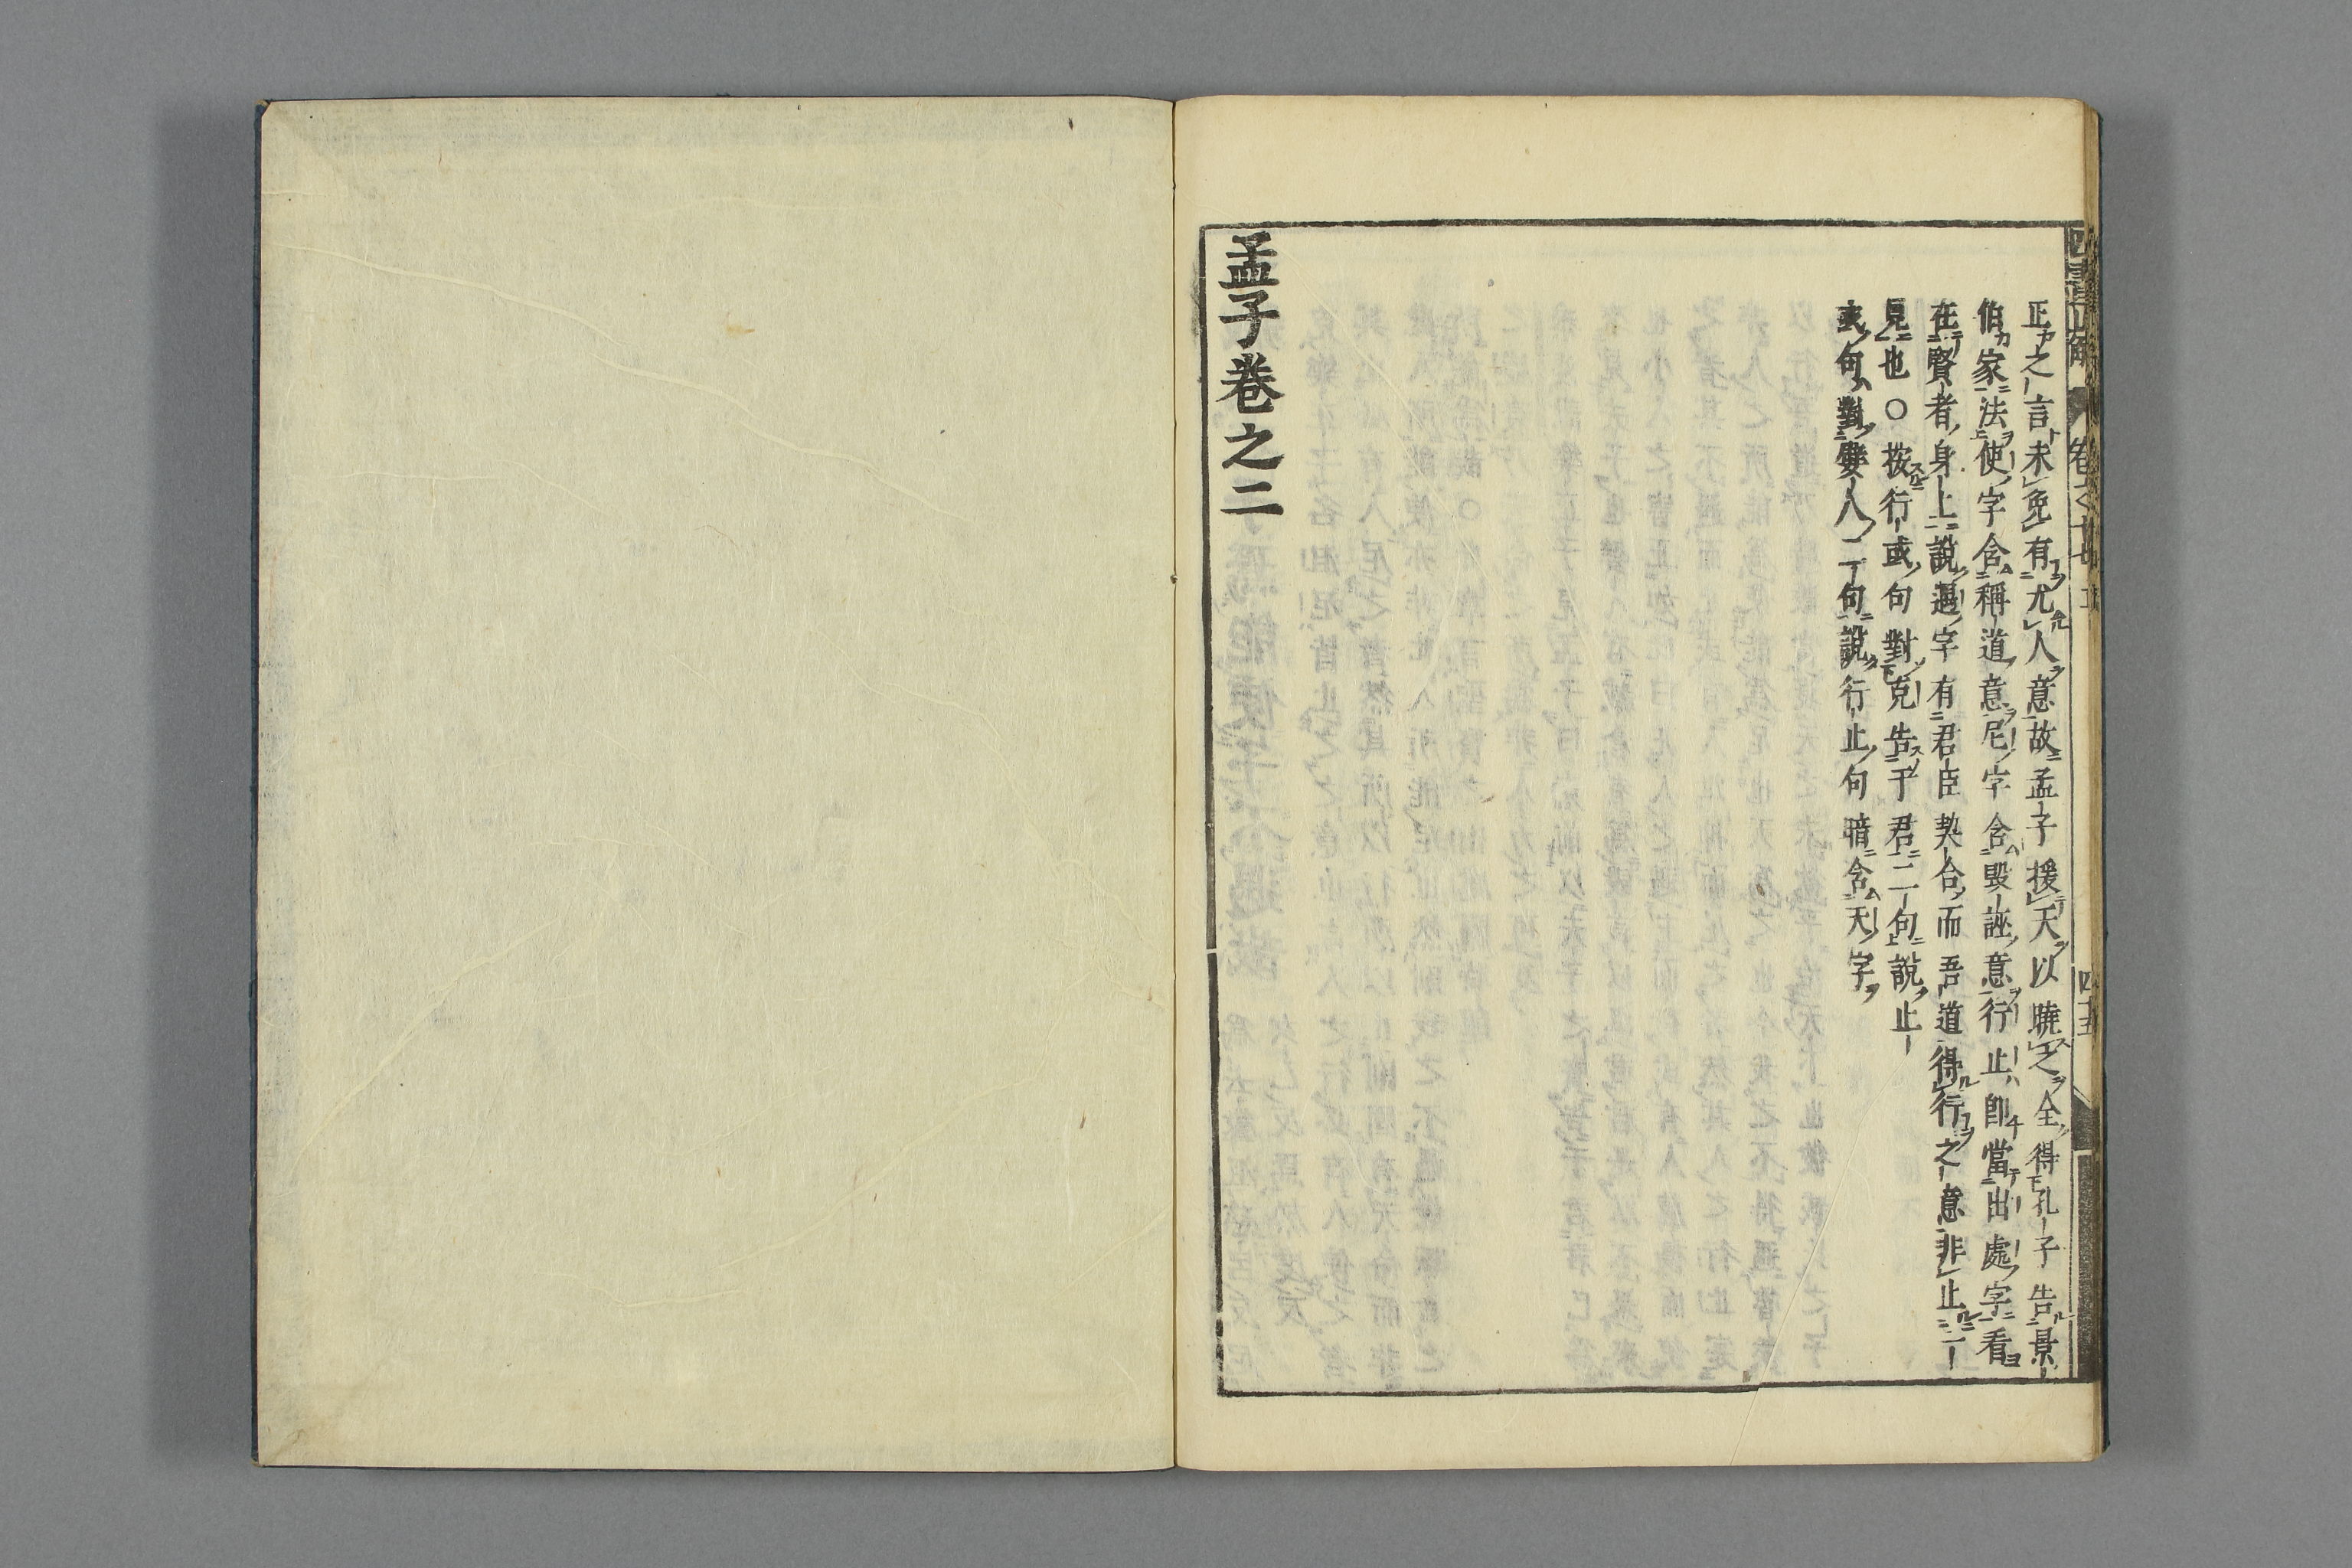 四書正解
四十五
正之言未免有尤人意故孟子援天以曉之全得孔子告景
伯家法使字含稱道意尼字含毀誣意行止卽當出處字看
在賢者身上說遇字有君臣契合而吾道得行之意非止一
見也○按行或句對克告于君二句說止
或句對嬖人二句說行止句暗含天字
孟子卷之二